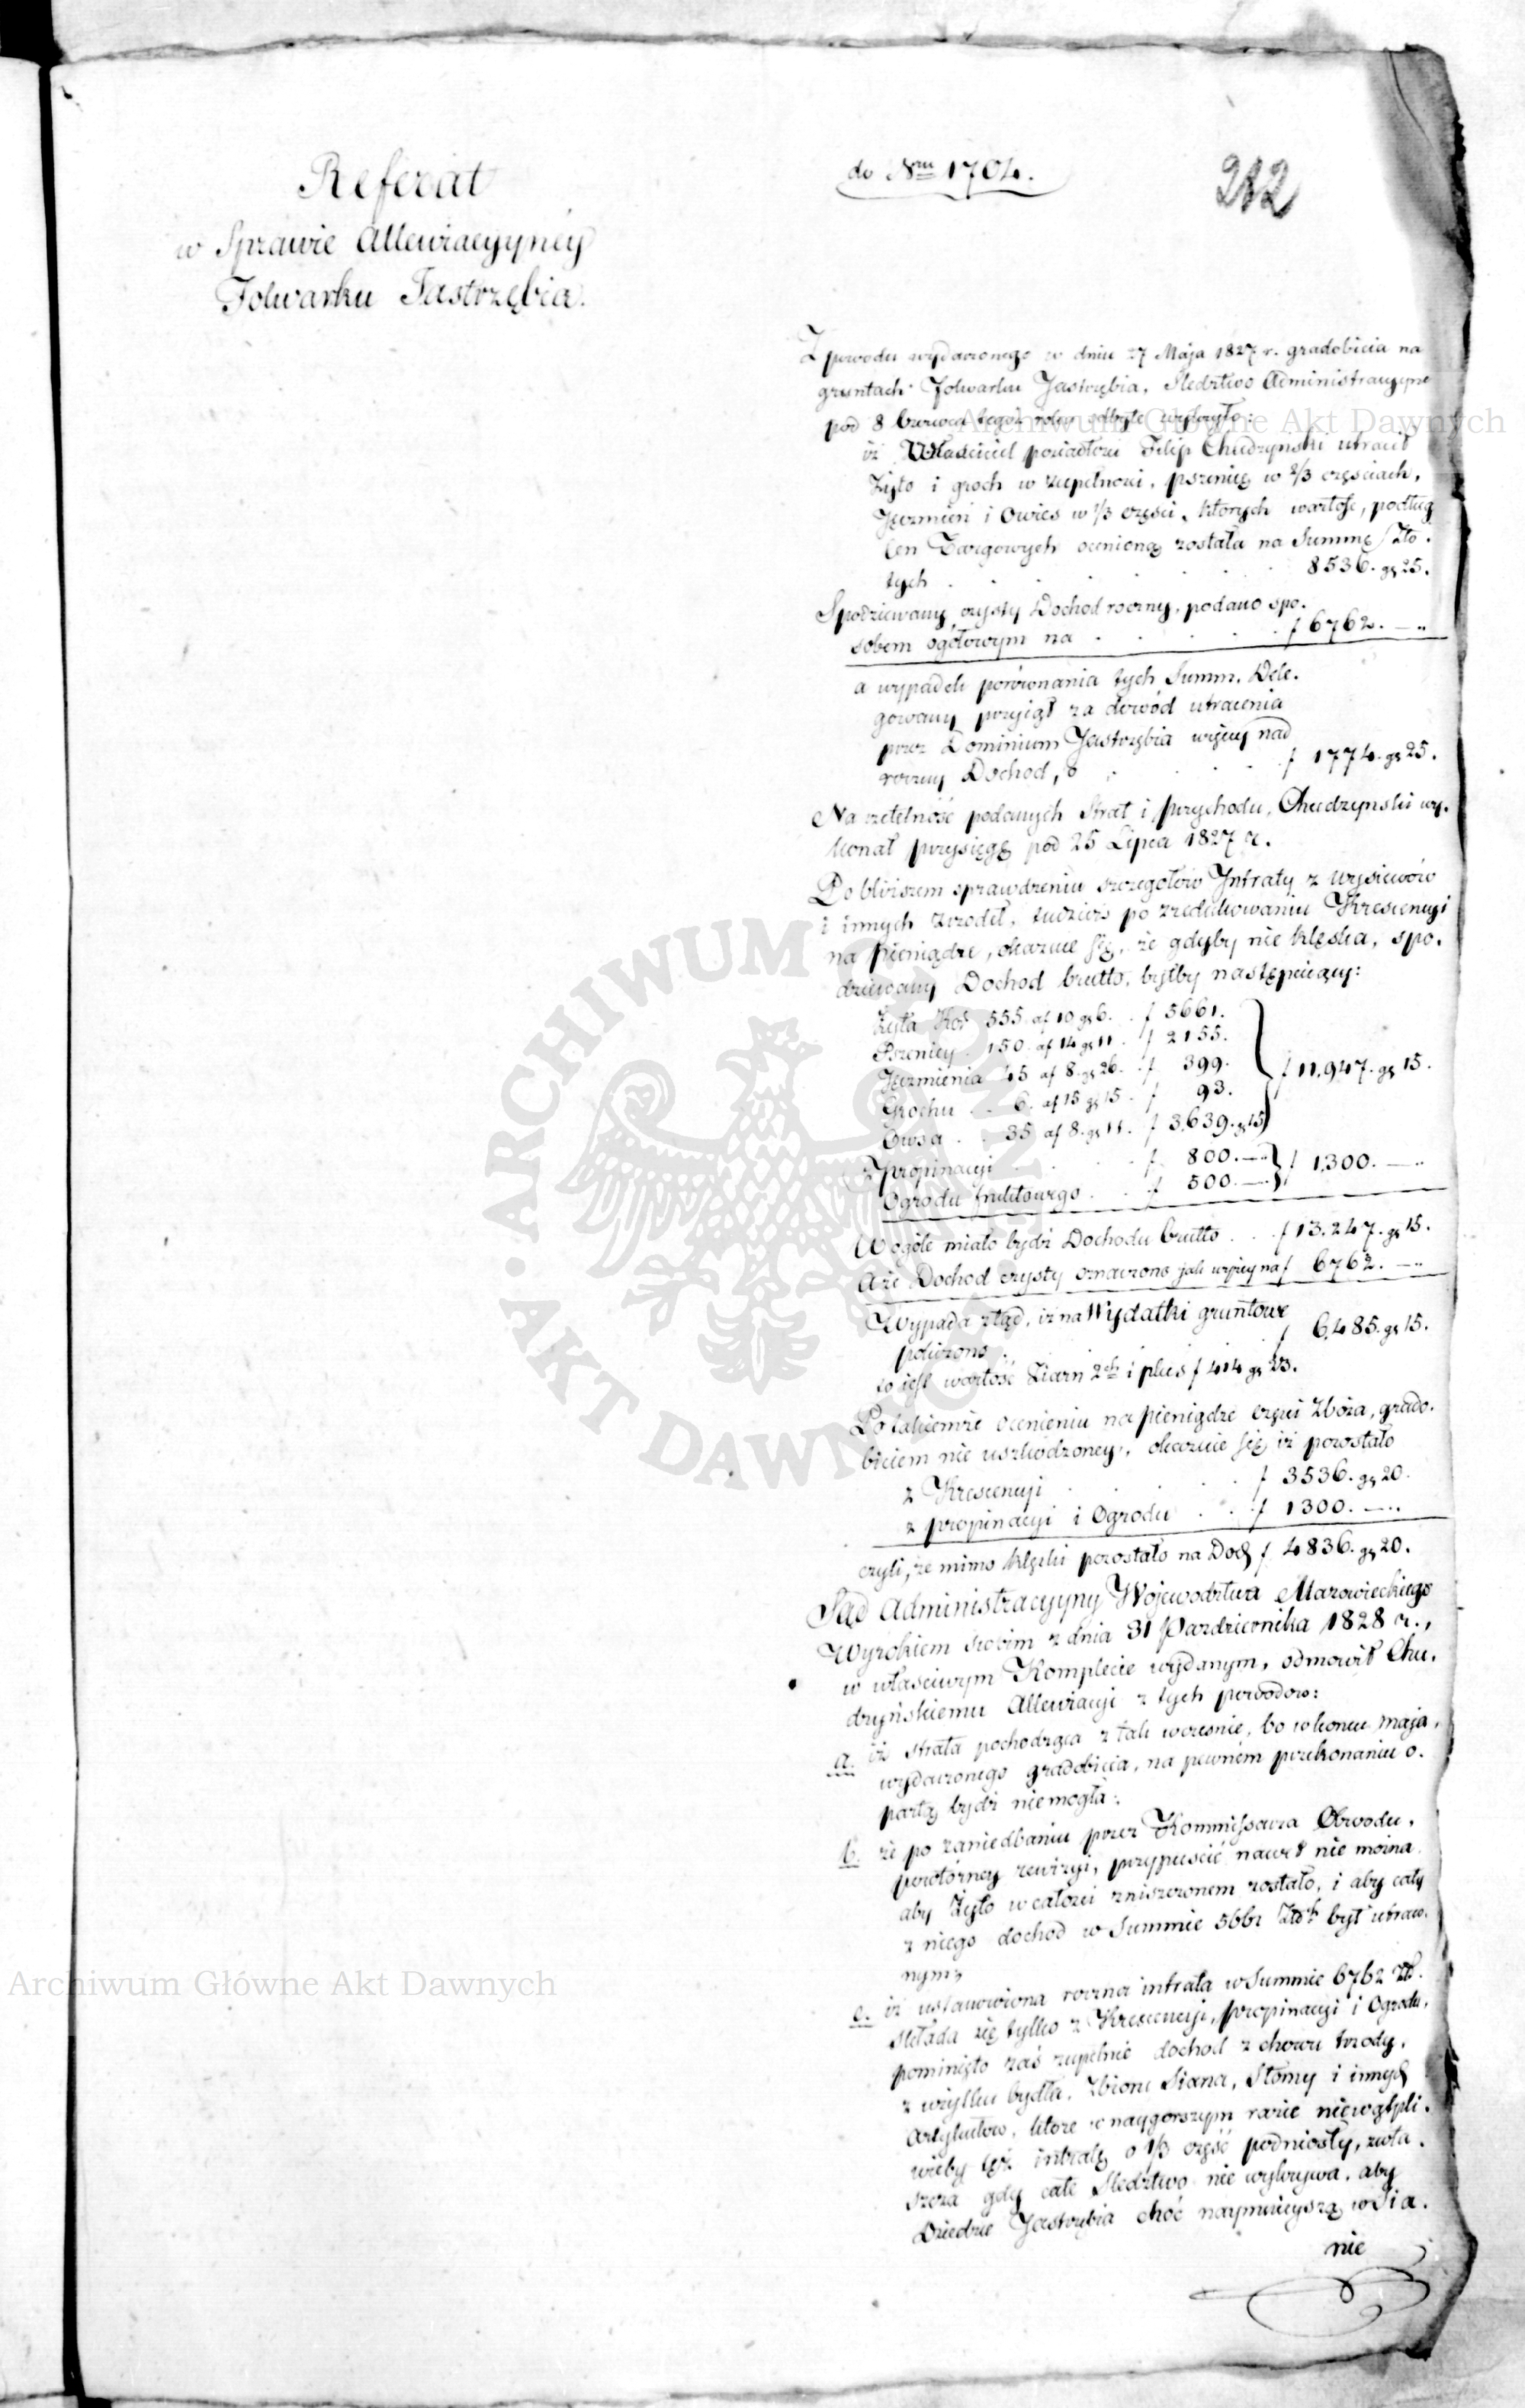 Referat
w Sprawie Allewiacyyney
Folwarku Jastrzębia.
do Nru 1704.
212
Z powodu wydarzonego w dniu 27 Maja 1827 r. gradobicia na
gruntach Folwarku Jastrzębia, Sledztwo Administracyyne
pod 8 Czerwca tegoż roku odbyte wykryło:
iż Właściciel posiadłości Filip Chudzynski utracił
Żyto i groch w zupełności, pszenicę w 2/3 częsciach,
Jęczmień i Owies w 1/3 części, których wartość, podług
Cen Targowych ocenioną została na Summę Zło.
tych . . . . . . 8536. gr 25.
Spodziewany czysty Dochod roczny, podano spo.
sobem ogółowym na . . . . . f 6762. —..
a wypadek porównania tych Summ. Dele.
gowany przyjął za dowód utracenia
przez Dominium Jastrzębia więcey nad
roczny Dochod, o . . . . f 1774. gr 25.
Na rzetelność podanych Strat i przychodu, Chudzynski wy.
konał przysięgę pod 25 Lipca 1827 r.
Po bliższem sprawdzeniu szczegołów Intraty z wysiewów
i innych zrodeł, tudzież po zredukowaniu Krescencyi
na pieniądze, okazuie się, że gdyby nie klęska, spo.
dziewany Dochod brutto, byłby następuiący:
Żyta Kor 555. af 10 gr 6. . f 5661.
Pszenicy . 150. af 14 gr 11 . f 2155.
Jęczmienia 45 af 8. gr 26. . f 399.
Grochu . . 6. af 15 gr 15 . f 93.
Owsa . . 35 af 8. gr 11. f 3,639. gr 15
f 11,947. gr 15.
z Propinacyi . . . . f 800. —..
Ogrodu fruktowego . . f 500. —..
f 1,300. —..
W ogóle miało bydź Dochodu brutto . . f 13,247. gr 15.
Aże Dochod czysty oznaczono jak wyżey na f 6762. —..
Wypada ztąd, iż na Wydatki gruntowe
policzono . . . . f 6,485. gr 15.
to jest wartość Ziarn 2ch i plus f 414 gr 23.
Po takiemże ocenieniu na pieniądze części Zboża, grado.
biciem nie uszkodzoney, okazuie się iż pozostało
z Krescencyi . . . . . f 3536. gr 20.
z propinacyi i Ogrodu . . . f 1300. —..
czyli, że mimo klęski pozostało na Doch f. 4836. gr 20.
Sąd Administracyyny Wojewodztwa Mazowieckiego
Wyrokiem swoim z dnia 31 Pazdziernika 1828 r.,
w właściwym Komplecie wydanym, odmowił Chu.
dzyńskiemu Allewiacyi z tych powodow:
a. iż strata pochodząca z tak wczesnie, bo w koncu maja,
wydarzonego gradobicia, na pewném przekonaniu o.
partą bydź niemogła:
b. że po zaniedbaniu przez Kommissarza Obwodu,
powtórney rewizyi, przypuścić nawet nie można
aby Żyto w całości zniszczonem zostało, i aby cały
z niego dochod w Summie 5661 Złł był utraco.
nym,
c. iż ustanowiona roczna intrata w Summie 6762 zł.
składa się tylko z Krescencyi, propinacyi i Ogrodu,
pominięto zaś zupełnie dochod z chowu trzody,
z użytku bydła, Zbioru Siana, Słomy i innych
artykułow, które w naygorszym razie niewątpli.
wieby tęż intratę o 1/3 część podniosły, zwła.
szcza gdy całe Sledztwo nie wykrywa, aby
Dziedzic Jastrzębia choć naymnieyszą w Sia.
nie
Archiwum Główne Akt Dawnych
Archiwum Główne Akt Dawnych
ARCHIWUM GŁÓWNE • AKT DAWNYCH •